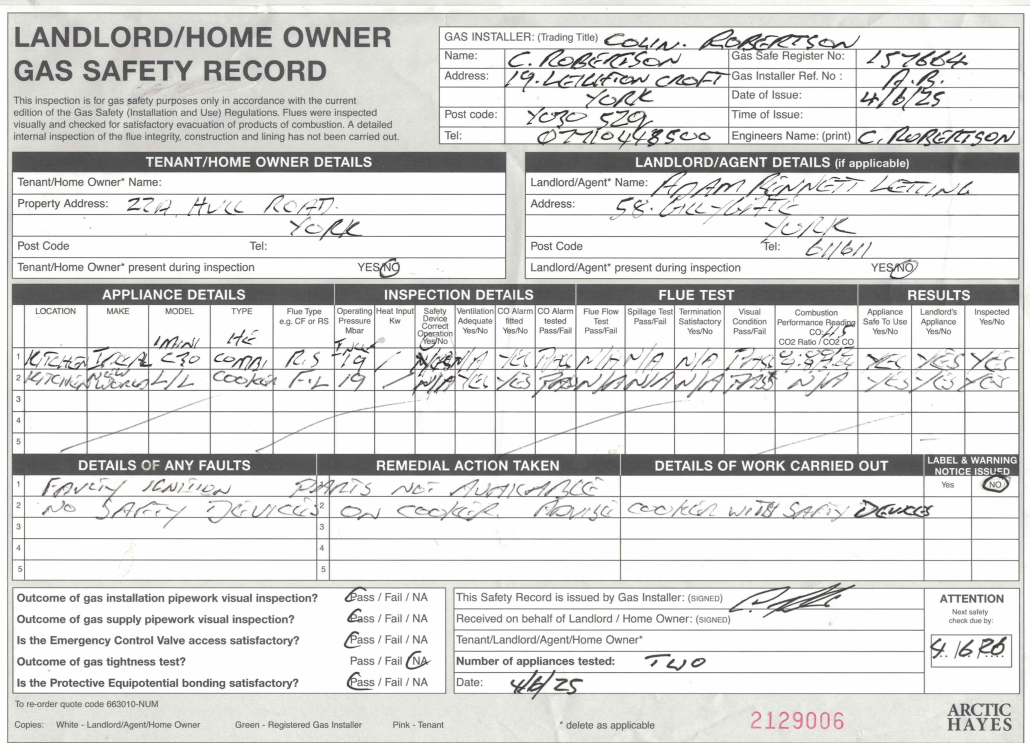 LANDLORD/HOME OWNER
GAS SAFETY RECORD
This inspection is for gas safety purposes only in accordance with the current
edition of the Gas Safety (Installation and Use) Regulations. Flues were inspected
visually and checked for satisfactory evacuation of products of combustion. A detailed
internal inspection of the flue integrity, construction and lining has not been carried out.
GAS INSTALLER: (Trading Title) COLIN. ROBERTSON
Name: C. ROBERTSON Gas Safe Register No: 157664
Address: 19. CROFT Gas Installer Ref. No : A.B.
YORK Date of Issue: 4/6/25
Post code: YO30 Time of Issue:
Tel: 07710448500 Engineers Name: (print) C. ROBERTSON
TENANT/HOME OWNER DETAILS
Tenant/Home Owner* Name:
Property Address: 22A HULL ROAD.
YORK
Post Code Tel:
Tenant/Home Owner* present during inspection YES/NO
LANDLORD/AGENT DETAILS (if applicable)
Landlord/Agent* Name: ADAM BENNETT LETTING
Address: 58. GILLYGATE
YORK
Post Code Tel: 611611
Landlord/Agent* present during inspection YES/NO
APPLIANCE DETAILS INSPECTION DETAILS FLUE TEST RESULTS
LOCATION MAKE MODEL TYPE Flue Type e.g. CF or RS Operating Pressure Mbar Heat Input Kw Safety Device Correct Operation Yes/No Ventilation Adequate Yes/No CO Alarm fitted Yes/No CO Alarm tested Pass/Fail Flue Flow Test Pass/Fail Spillage Test Pass/Fail Termination Satisfactory Yes/No Visual Condition Pass/Fail Combustion Performance Reading CO: CO2 Ratio / CO2 CO Appliance Safe To Use Yes/No Landlord's Appliance Yes/No Inspected Yes/No
MINI HE
1 KITCHEN IDEAL C30 COMBI R.S 19 / N/A YES PASS N/A N/A N/A PASS YES YES YES
2 KITCHEN NEW WORLD L/L COOKER F/L 19 / N/A YES YES PASS N/A N/A N/A PASS N/A YES YES YES
3
4
5
DETAILS OF ANY FAULTS REMEDIAL ACTION TAKEN DETAILS OF WORK CARRIED OUT LABEL & WARNING NOTICE ISSUED
1 FAULTY IGNITION PARTS NOT AVAILABLE Yes NO
2 NO SAFETY DEVICES 2 ON COOKER. ADVISE COOKER WITH SAFTY DEVICES
3
4 4
5 5
Outcome of gas installation pipework visual inspection? Pass / Fail / NA
Outcome of gas supply pipework visual inspection? Pass / Fail / NA
Is the Emergency Control Valve access satisfactory? Pass / Fail / NA
Outcome of gas tightness test? Pass / Fail / NA
Is the Protective Equipotential bonding satisfactory? Pass / Fail / NA
This Safety Record is issued by Gas Installer: (SIGNED)
Received on behalf of Landlord / Home Owner: (SIGNED)
Tenant/Landlord/Agent/Home Owner*
Number of appliances tested: TWO
Date: 4/6/25
ATTENTION
Next safety
check due by:
4.6.26
To re-order quote code 663010-NUM
Copies: White - Landlord/Agent/Home Owner Green - Registered Gas Installer Pink - Tenant * delete as applicable
2129006
ARCTIC
HAYES